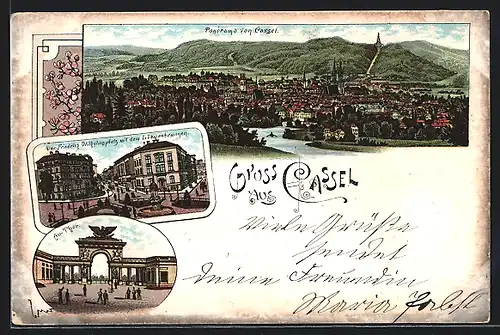 Panorama von Cassel.
Der Friedrich Wilhelmsplatz mit dem Löwenbrunnen.
Au-Thor.
Gruss
aus
Cassel
Viele Grüße
sendet
Deine Freundin
Maria